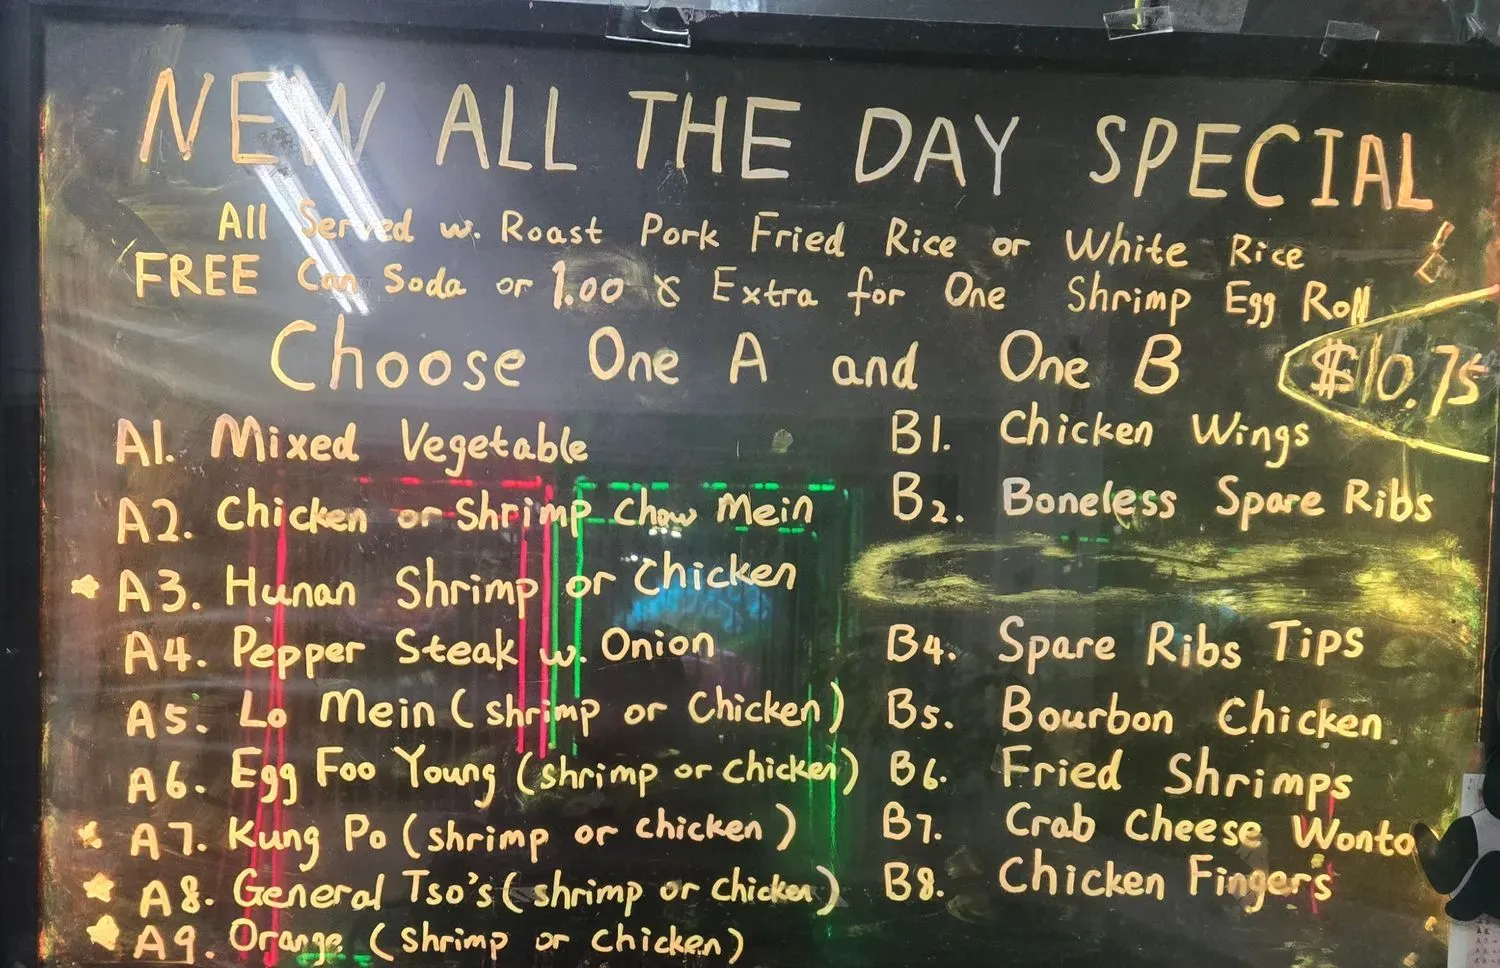 NEW ALL THE DAY SPECIAL
All Served w. Roast Pork Fried Rice or White Rice
FREE Can Soda or 1.00 Extra for One Shrimp Egg Roll
Choose One A and One B
$10.75
A1. Mixed Vegetable
A2. Chicken or Shrimp Chow Mein
A3. Hunan Shrimp or Chicken
A4. Pepper Steak w. Onion
A5. Lo Mein (shrimp or Chicken)
A6. Egg Foo Young (shrimp or chicken)
A7. Kung Po (shrimp or chicken)
A8. General Tso's (shrimp or chicken)
A9. Orange (shrimp or chicken)
B1. Chicken Wings
B2. Boneless Spare Ribs
B4. Spare Ribs Tips
B5. Bourbon Chicken
B6. Fried Shrimps
B7. Crab Cheese Wonto
B8. Chicken Fingers